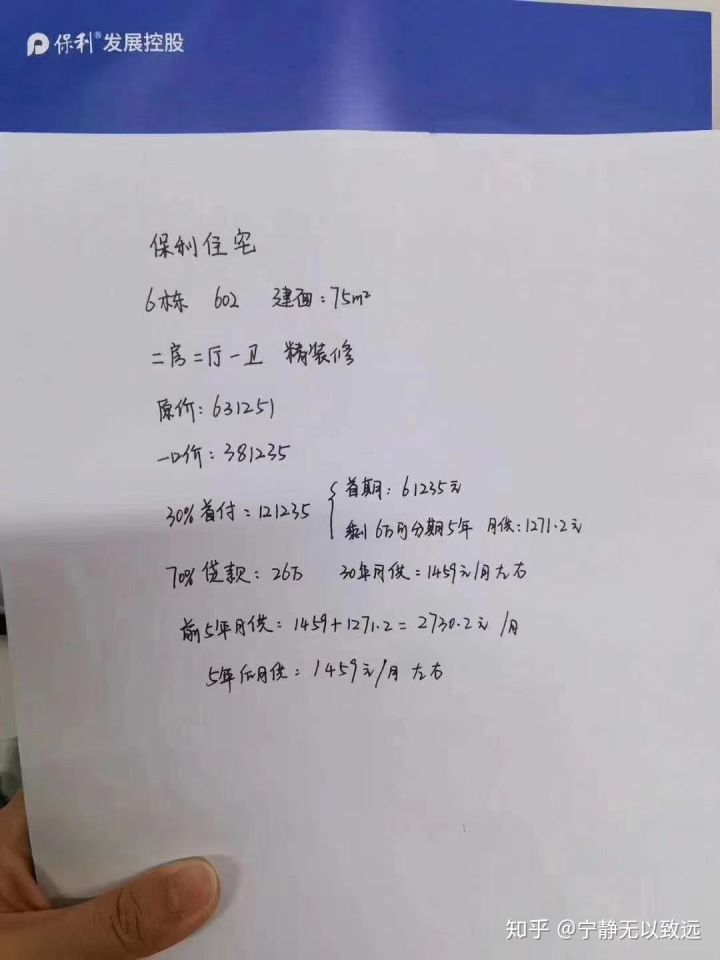 保利®发展控股
保利住宅
6栋 602 建面:75m²
二房二厅一卫 精装修
原价:631251
一口价:381235
30%首付:121235
首期:61235元
剩6万可分期5年 月供:1271.2元
70%贷款:26万 30年月供:1459元/月左右
前5年月供:1459+1271.2=2730.2元/月
5年后月供:1459元/月左右
知乎 @宁静无以致远